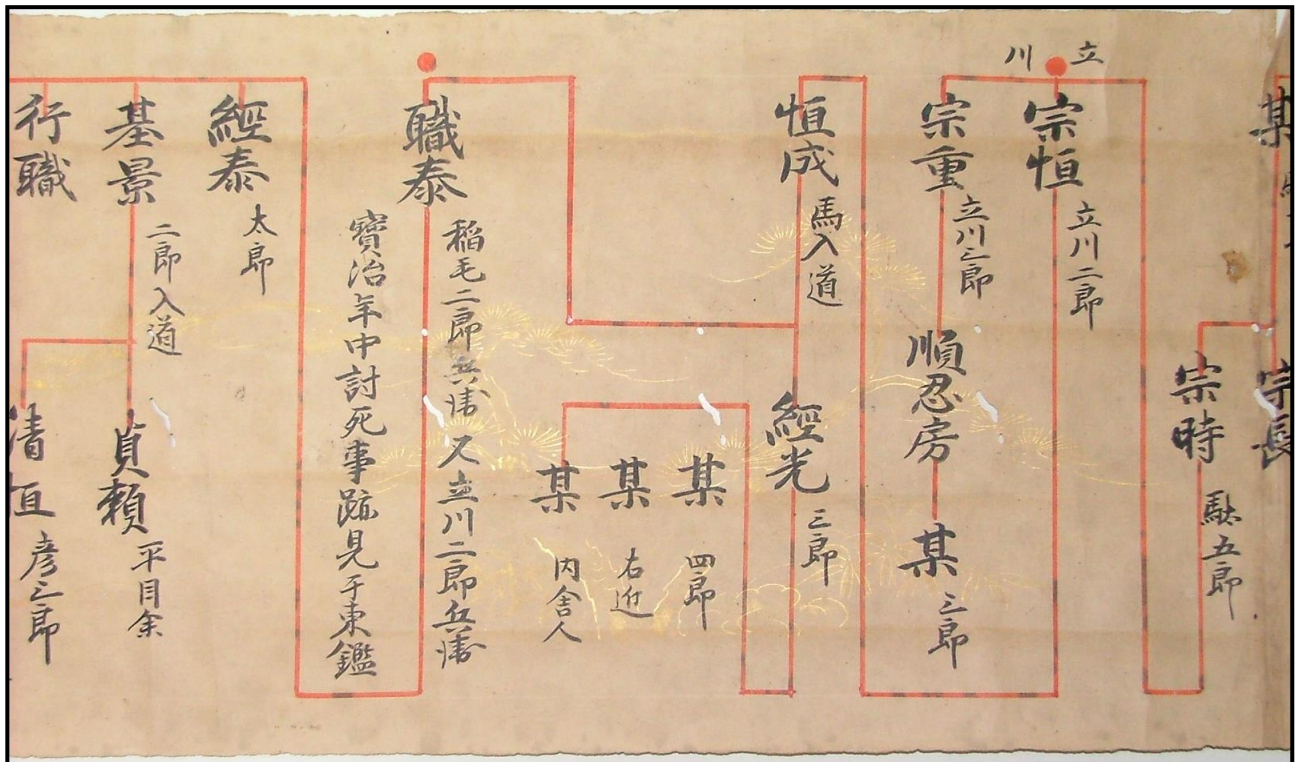 某
宗長
宗時
駄五郎
立川
宗恒
立川二郎
宗重
立川三郎
順忍房
某
三郎
恒成
馬入道
經光
三郎
某
四郎
某
右近
某
内舎人
職泰
稲毛二郎兵衛 又立川二郎兵衛
寶治年中討死事蹟見于東鑑
經泰
太郎
基景
二郎入道
貞頼
平目余
行職
清恒
彦三郎